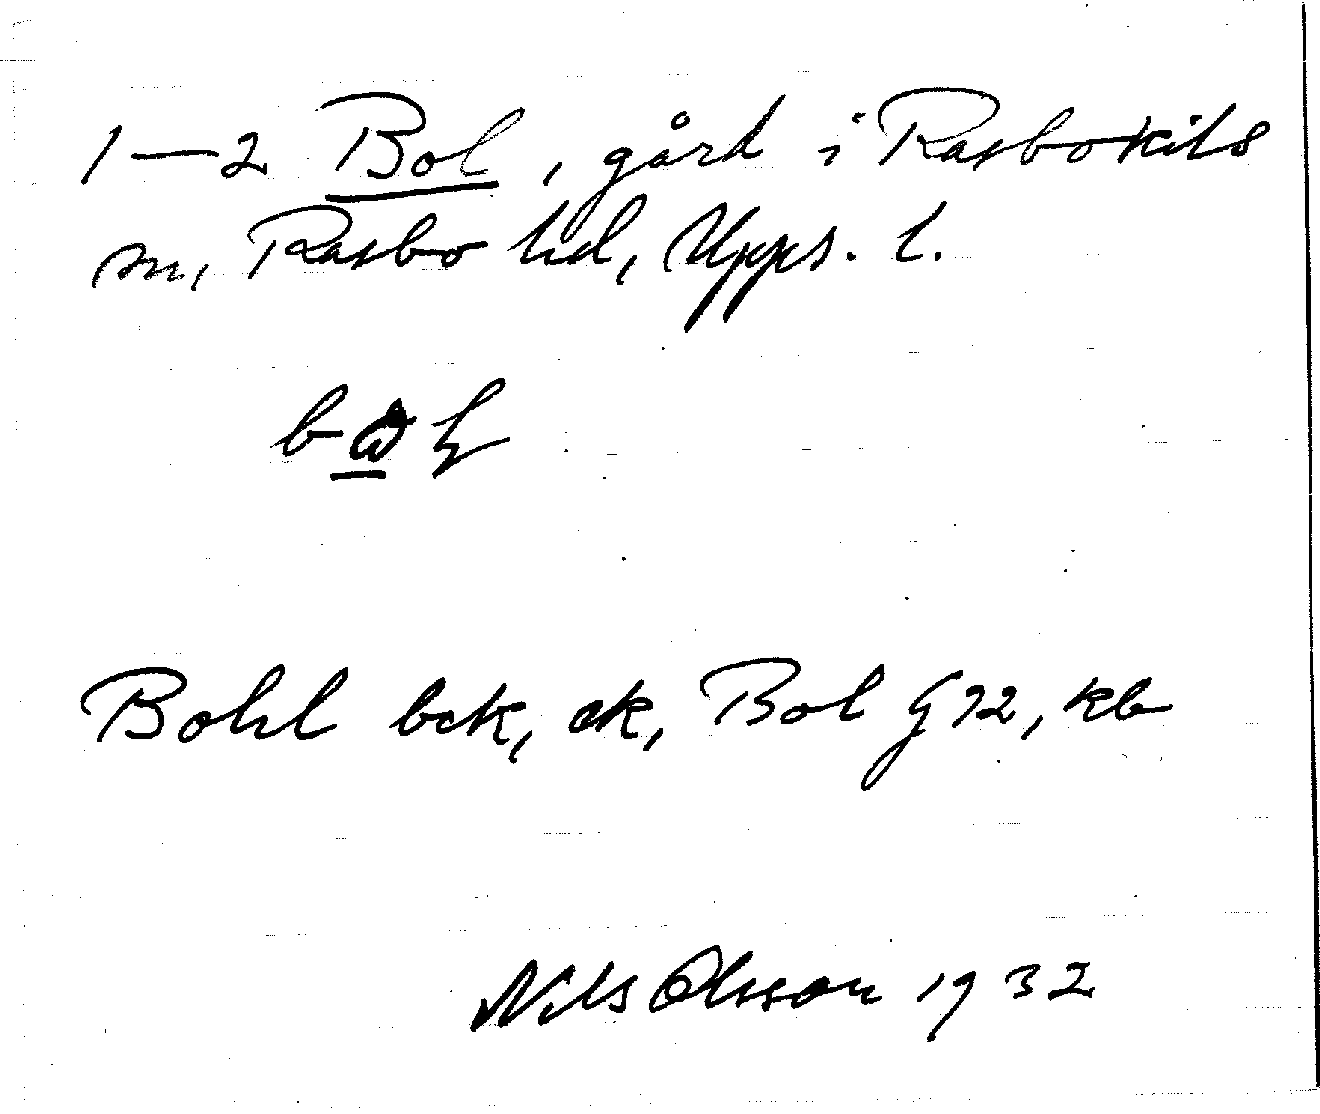 1—2 Bol, gård i Rasbokils
sn, Rasbo hd, Upps. l.
Bohl bck, ek, Bol G 72, kb
Nils Olsson 1932